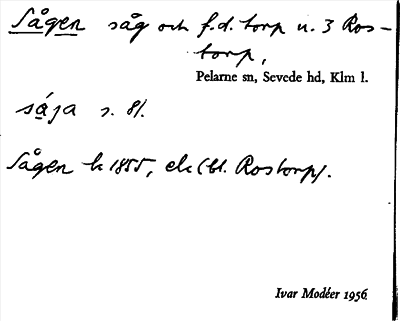 Sågen såg och f.d. torp u. 3 Ros-
torp,
Pelarne sn, Sevede hd, Klm l.
såja s. 81.
Sågen k 1855, ek (bl. Rostorp).
Ivar Modéer 1956